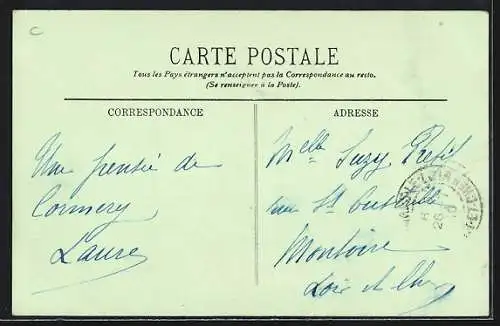 C
CARTE POSTALE
Tous les Pays étrangers n'acceptent pas la Correspondance au recto.
(Se renseigner à la Poste).
CORRESPONDANCE
ADRESSE
Une pensée de
Cormery
Laure
Melle Suzy Petit
rue St
Montoire
Loir et Cher